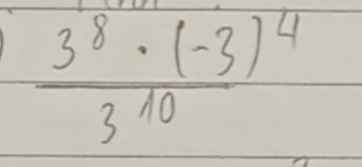 ) 3^8 · (-3)^4
3^10